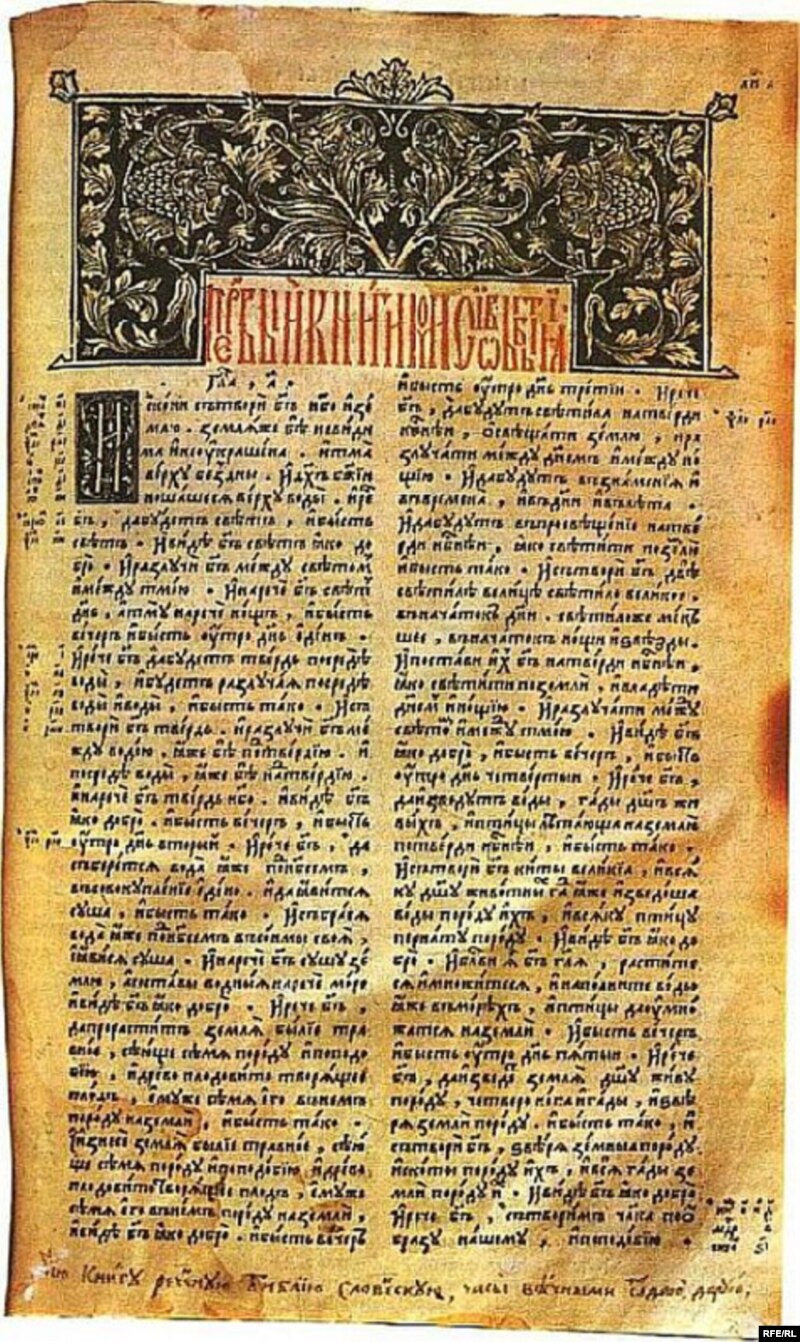 И
скони сътвори бг҃ъ н҃бо и зе
млю . земля же бѣ невиди
ма и неукрашена . и тма
верху бездны . и дх҃ъ бж҃ии
ношашеся верху воды . и рече
бг҃ъ , да будетъ свѣтъ , и бысть
свѣтъ . и видѣ бг҃ъ свѣтъ ꙗко до
бро . и разлучи бг҃ъ между свѣтомъ
и между тмою . и нарече бг҃ъ свѣтъ
днь , а тму нарече нощь , и бысть
вечеръ и бысть оутро днь единъ .
И рече бг҃ъ да будетъ твердь посредѣ
воды , и будетъ разлучая посредѣ
воды и воды , и бысть тако . И съ
твори бг҃ъ твердь . и разлучи бг҃ъ ме
жду водою , ꙗже бѣ под твердию . и
посредѣ воды , ꙗже бѣ над твердию .
и нарече бг҃ъ твердь небо . и видѣ бг҃ъ
ꙗко добро . и бысть вечеръ , и бысть
оутро днь вторый . И рече бг҃ъ , да
съберется вода ꙗже под нб҃семъ ,
въ совокупление едино . и да ꙗвится
суша , и бысть тако . И събрася
вода ꙗже под нб҃семъ въ сонмы своя ,
и ꙗвися суша . И нарече бг҃ъ сушу зе
млю , а съставы водныя нарече моря
и видѣ бг҃ъ ꙗко добро . И рече бг҃ъ ,
да прорастить земля былие тра
вное , сѣюще сѣмя по роду и по подо
бию , и древо плодовито творящее
плодъ , ему же сѣмя его в немъ
по роду на земли , и бысть тако .
И изнесе земля былие травное , сѣю
ще сѣмя по роду и по подобию , и древо
плодовито творящее плодъ , ему же
сѣмя его в немъ по роду на земли ,
и видѣ бг҃ъ ꙗко добро . и бысть вечеръ
и бысть оутро днь третии . И рече
бг҃ъ , да будутъ свѣтила на тверди
нбс҃нѣи , освѣщати землю , и ра
злучати между днемъ и между но
щию . И да будутъ въ знамения и
въ времена , и въ дни и въ лѣта .
И да будутъ въ просвѣщение на тве
рди нбс҃нѣи , ꙗко свѣтити по земли
и бысть тако . И сътвори бг҃ъ двѣ
свѣтилѣ велицѣ свѣтило великое .
въ начатокъ дни . свѣтило же мен
шее , въ начатокъ нощи и ѕвѣзды .
И постави ихъ бг҃ъ на тверди нбс҃нѣи ,
ꙗко свѣтити по земли , и владѣти
днем и нощию . И разлучати между
свѣтом и между тмою . И видѣ бг҃ъ
ꙗко добро , и бысть вечеръ , и бысть
оутро днь четвертыи . И рече бг҃ъ ,
да изведутъ воды , гады дш҃ъ жи
выхъ , и птицы лѣтающа на земли
по тверди нбс҃нѣи , и бысть тако .
И сътвори бг҃ъ киты великия , и вся
ку дш҃у животных гад ꙗже изведоша
воды по роду ихъ , и всяку птицу
пернату по роду . И видѣ бг҃ъ ꙗко до
бро . И блг҃ви я бг҃ъ гл҃я , растите
ся и множитеся , и наполните воды
ꙗже в морѣхъ , и птицы да оумно
жатся на земли . И бысть вечеръ
и бысть оутро днь пятыи . И рече
бг҃ъ , да изведетъ земля дш҃у живу
по роду , четвероногая и гады , и ѕвѣ
ря земли по роду . и бысть тако , и
сътвори бг҃ъ , ѕвѣря земныа по роду .
и скоты по роду ихъ , и вся гады зе
мли по роду их . И видѣ бг҃ъ ꙗко добро
И рече бг҃ъ , сътворимъ чл҃ка по об
разу нашему , и по подобию .
Книгу реченную библию словенскую,
RFE/RL